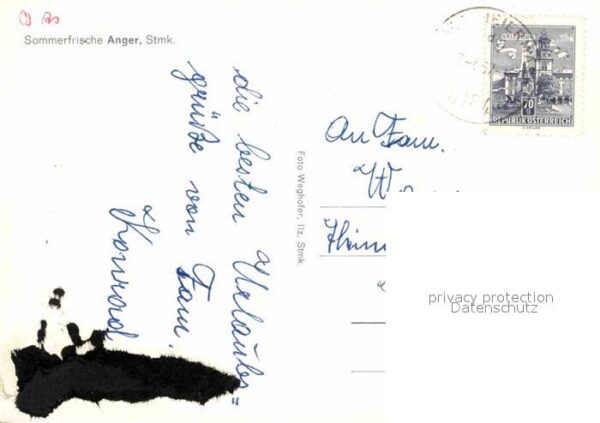 Sommerfrische Anger, Stmk.
die besten Urlaubs=
grüße von Fam.
Konrad
Foto Weghofer, Ilz, Stmk.
An Fam.
W
70
REPUBLIK ÖSTERREICH
privacy protection
Datenschutz